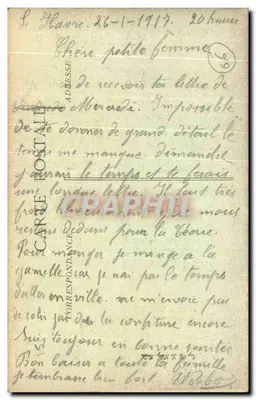 Le Havre. 26-1-1917. 20 heures
Chère petite femme
66
de recevoir ta lettre de
Mercredi. Impossible
de te donner de grand détail le
temps me manque dimanche
j'aurai le temps et te ferais
une longue lettre. Il fait très
froid
dedans pour la
Pour manger je mange a la
gamelle car je n'ai pas le temps
d'aller en ville. ne m'envoie pas
de colis j'ai de la confiture encore
Suis toujour en bonne santée
Bon baiser a toute la famille
je t'embrasse bien fort
CARTE POSTALE
CORRESPONDANCE
ADRESSE
CPAPHIL